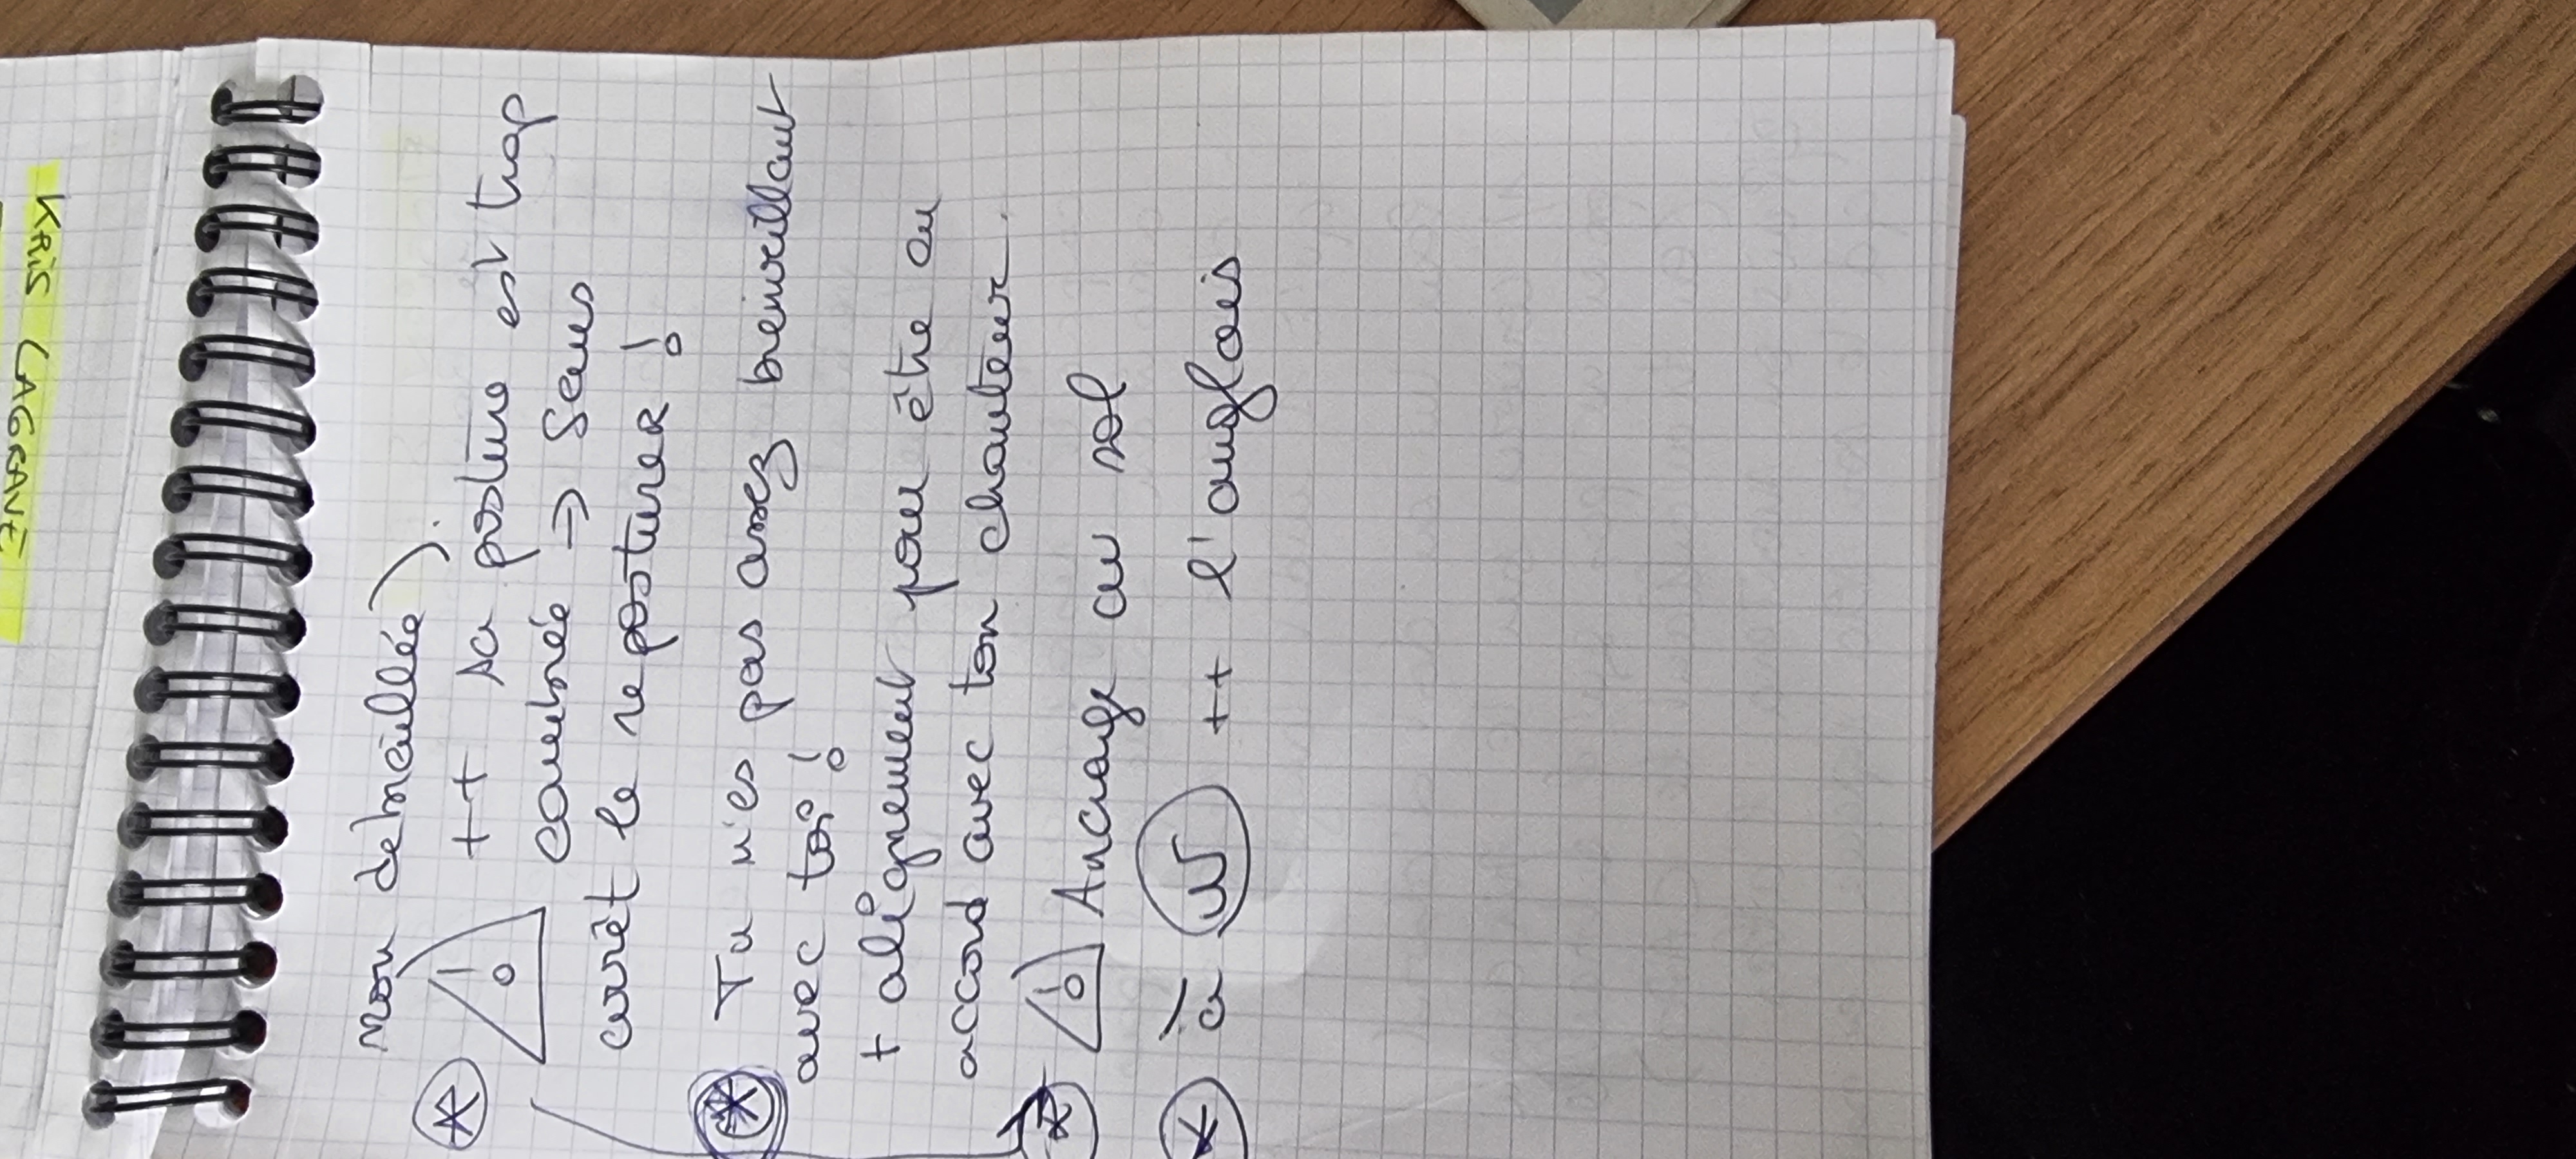 KRIS LAGRANE
non détaillée).
++ sa posture est trop
cambrée => Sans
arrêt le reposturer !
Tu n'es pas assez bienveillant
avec toi !
+ alignement pour être en
accord avec ton chanteur.
Ancrage au sol
à W ++ l'anglais